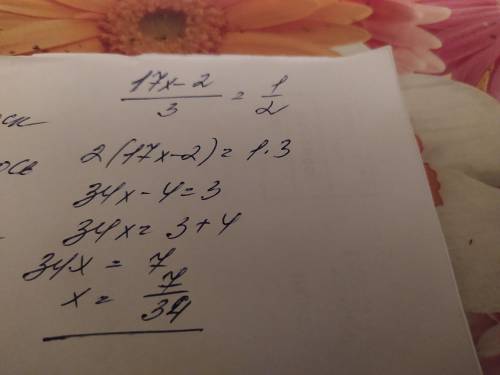 (17x-2)/3 = 1/2
2(17x-2)=1·3
34x-4=3
34x=3+4
34x = 7
x = 7/34